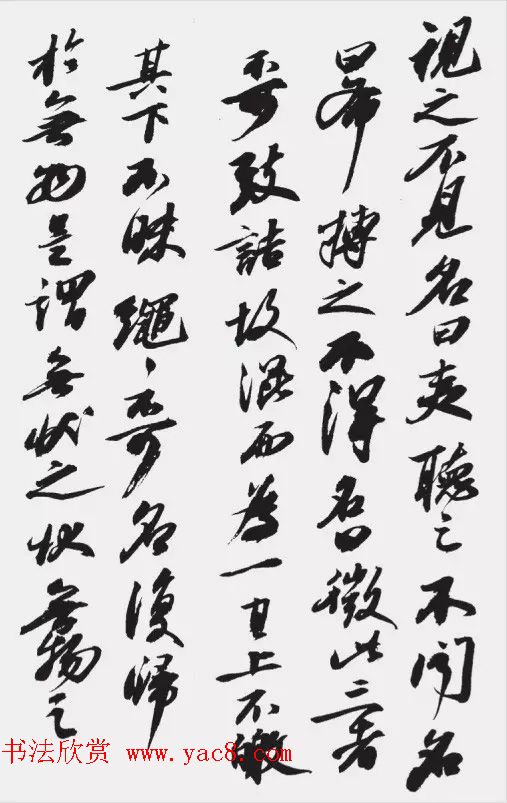 視之不見名曰夷聽之不聞名
曰希搏之不得名曰微此三者
不可致詰故混而為一其上不皦
其下不昧繩〻不可名復歸
於無物是謂無狀之狀無物之
书法欣赏 www.yac8.com